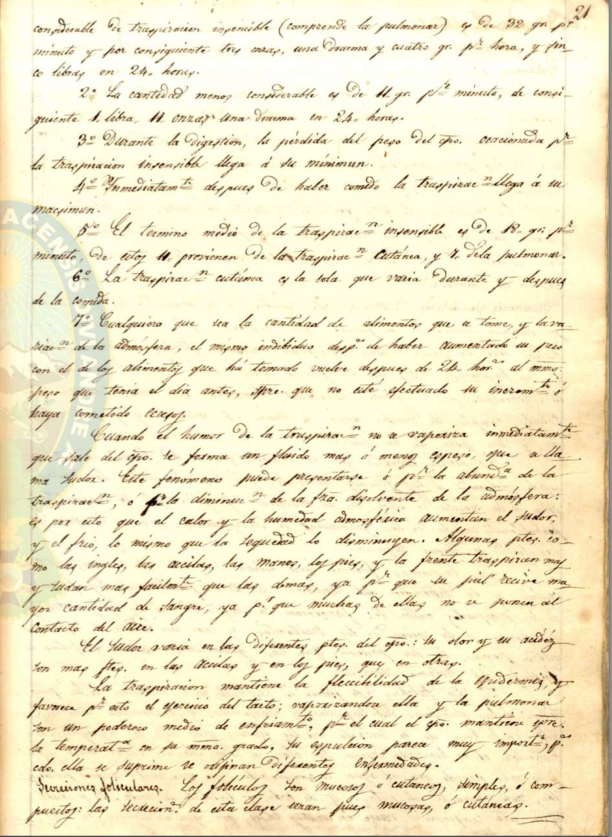 21
considerable de traspiracion insensible (comprende la pulmonar) es de 32 gr. pr.
minuto y por consiguiente tres onzas, una dracma y cuatro gr. pr. hora, y sin-
co libras en 24. horas.
2.º La cantidad menos considerable es de 11 gr. pr. minuto, de consi-
guiente 1. libra, 11 onzas una dracma en 24. horas.
3.º Durante la digestion, la pérdida del peso del cpo. ocacionada pr.
la traspiracion insensible llega á su minimun.
4.º Inmediatamte. despues de haber comido la traspiracn. llega á su
macsimun.
5.to El termino medio de la traspiracn. insensible es de 18. gr. pr.
minuto, de estos 11. provienen de la traspiracn. cutánea, y 7. dela pulmonar.
6.º La traspiracn. cutánea es la sola que varia durante y despues
de la comida.
7.º Cualquiera que sea la cantidad de alimentos que se tome, y la va-
riacn. de la admósfera, el mismo indibiduo desps. de haber aumentado su peso
con el de los alimentos que há tomado vuelve despues de 24. hors. al mmo.
peso que tenia el dia antes, spre. que no esté efectuado su incremto. ó
haya cometido ecsesos.
Cuando el humor de la traspiracn. no se vaporiza inmediatamte.
que sale del cpo. se forma un fluido mas ó menos espeso, que se lla-
ma sudor. Este fenómeno puede presentarse ó pr. la abunda. de la
traspiracn., ó pr. la diminucn. de la fza. disolvente de la admósfera:
es por esto que el calor y la humedad admosférica aumentan el sudor,
y el frio, lo mismo que la sequedad lo disminuyen. Algunas ptes. co-
mo las ingles, las accilas, las manos, los pies, y la frente traspiran mas
y sudan mas facilmte. que las demas, ya pr. que su piel recive ma-
yor cantidad de sangre, ya pr. que muchas de ellas no se ponen al
contacto del aire.
El sudor varia en las diferentes ptes. del cpo.: su olor y su acidéz
son mas ftes. en las accilas y en los pies, que en otras.
La traspiracion mantiene la flecsibilidad de la epidermis, y
favorece pr. esto el ejercicio del tacto; vaporizandose ella y la pulmonar
son un poderoso medio de enfriamto., pr. el cual el cpo. mantiene
la temperata. en su mmo. grado, su espulsion parece muy importte., pr.
cdo. ella se suprime se orijinan diferentes enfermedades.
Secreciones foliculares. Los folículos son mucosos ó cutaneos, simples, ó com-
puestos: las secrecions. de esta clase seran pues mucosas, ó cutaneas.